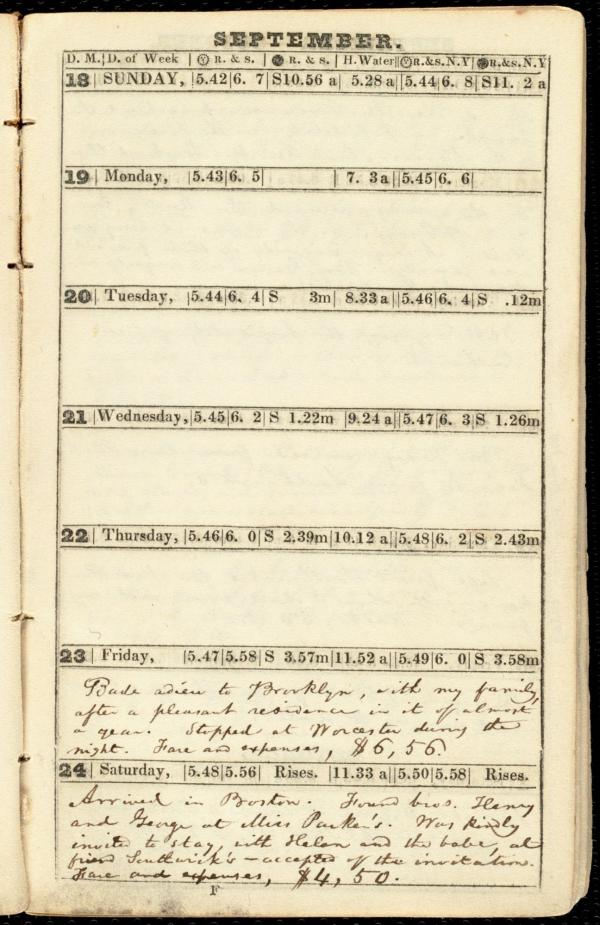 SEPTEMBER.
D. M. | D. of Week | ☉ R. & s. | ● R. & s. | H. Water || ☉R.&s.N.Y | ●R.&s.N.Y
18 | SUNDAY, | 5.42 | 6. 7 | S10.56 a | 5.28 a || 5.44 | 6. 8 | S11. 2 a
19 | Monday, | 5.43 | 6. 5 | | 7. 3a || 5.45 | 6. 6 |
20 | Tuesday, | 5.44 | 6. 4 | S 3m | 8.33 a || 5.46 | 6. 4 | S .12m
21 | Wednesday, | 5.45 | 6. 2 | S 1.22m | 9.24 a || 5.47 | 6. 3 | S 1.26m
22 | Thursday, | 5.46 | 6. 0 | S 2.39m | 10.12 a || 5.48 | 6. 2 | S 2.43m
23 | Friday, | 5.47 | 5.58 | S 3.57m | 11.52 a || 5.49 | 6. 0 | S 3.58m
Bade adieu to Brooklyn, with my family,
after a pleasant residence in it of almost
a year. Stopped at Worcester during the
night. Fare and expenses, $6,56.
24 | Saturday, | 5.48 | 5.56 | Rises. | 11.33 a || 5.50 | 5.58 | Rises.
Arrived in Boston. Found bros. Henry
and George at Miss Parker's. Was kindly
invited to stay, with Helen and the babe, at
friend Southwick's — accepted of the invitation.
Fare and expenses, $4,50.
F